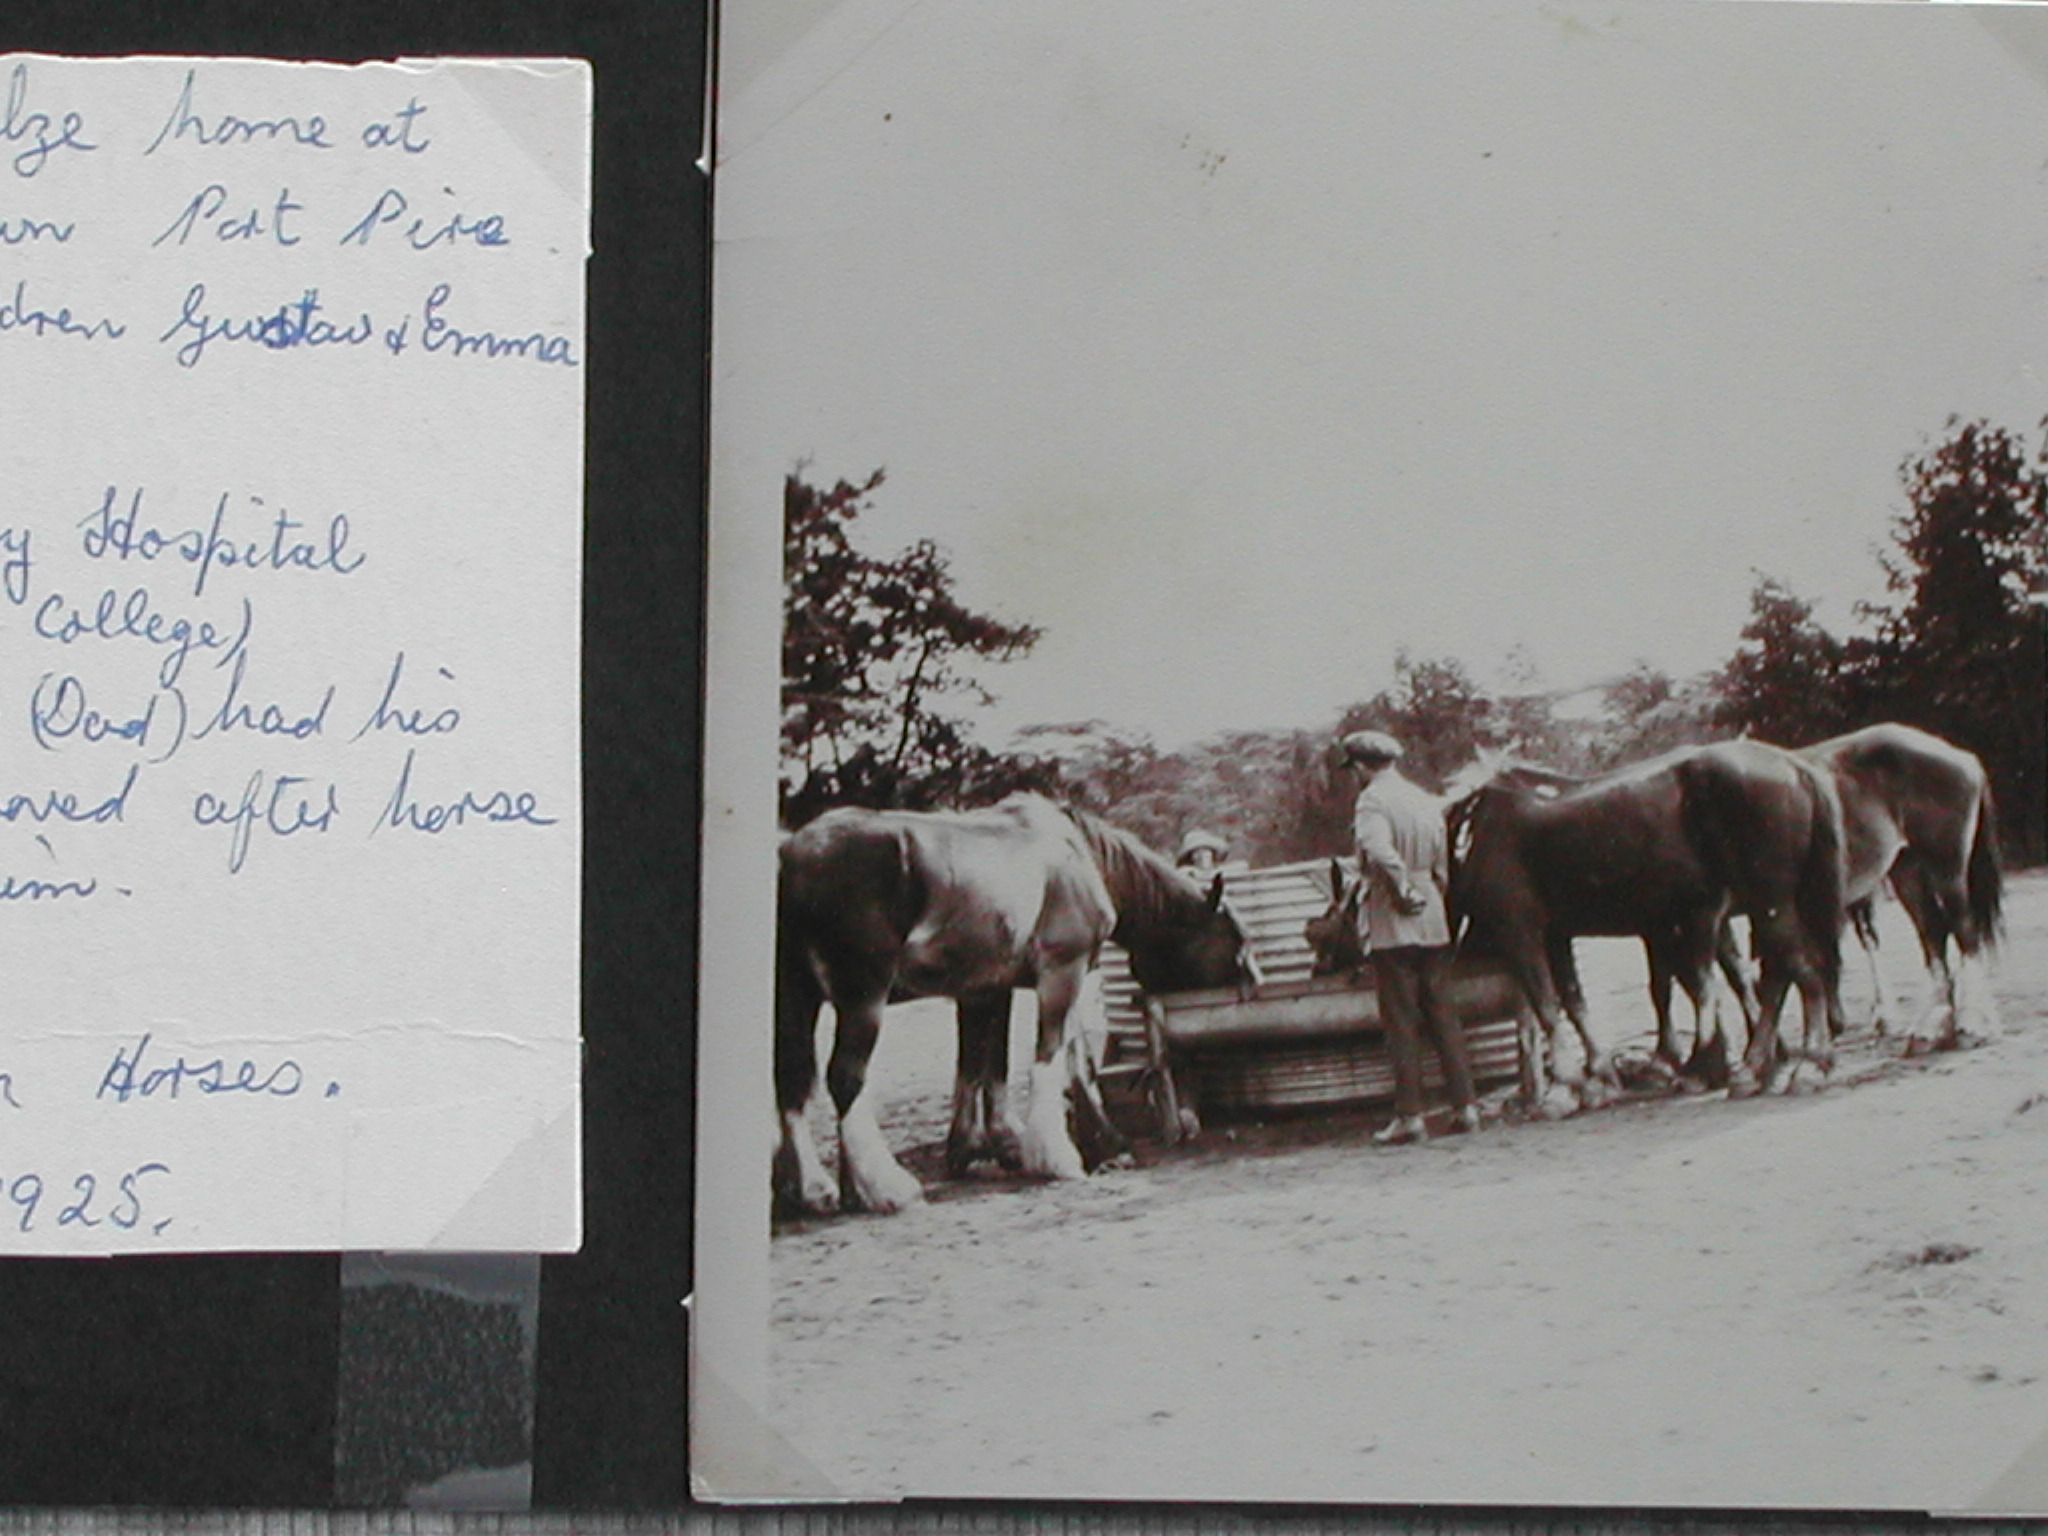 lze home at
wn Port Pirie
dren Gustav & Emma
y Hospital
College)
(Dad) had his
oved after horse
im.
n Horses.
1925.